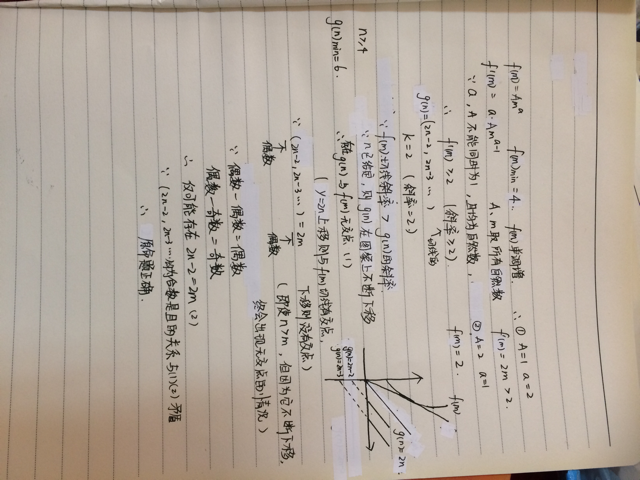 f(m)=Amᵃ f(m)min=4. f(m)单调增. ∴ ① A=1 a=2
f'(m)=a·Amᵃ⁻¹ A、m取所有自然数 f(m)=2m>2.
∵ a,A不能同时为1,且均为自然数, ② A=2 a=1
∴ f'(m)≥2 (斜率≥2) f'(m)=2.
g(n)=(2n-2, 2n-3 …)
k=2 (斜率=2)
∵ f(m)切线斜率 > g(n)的斜率.
∵ n已给定, 则g(n)在图象上不断下移
∴ g(n)与f(m)无交点 (1)
(y=2n上移则与f(m)切线有交点,
下移则没有交点)
f(m)
g(n)=2n.
g(n)=2n-2
g(n)=2n-3
n≥4
g(n)min=6.
∵ (2n-2, 2n-3 …)=2m
不 不 (即使n>m, 但因为它不断下移,
偶数 偶数 终会出现无交点的情况)
∵ 偶数-偶数=偶数
偶数-奇数=奇数
∴ 仅可能存在 2n-2=2m (2)
∵ (2n-2, 2n-3 …)均为合数是且的关系与(1)(2)矛盾
∴ 原命题正确.